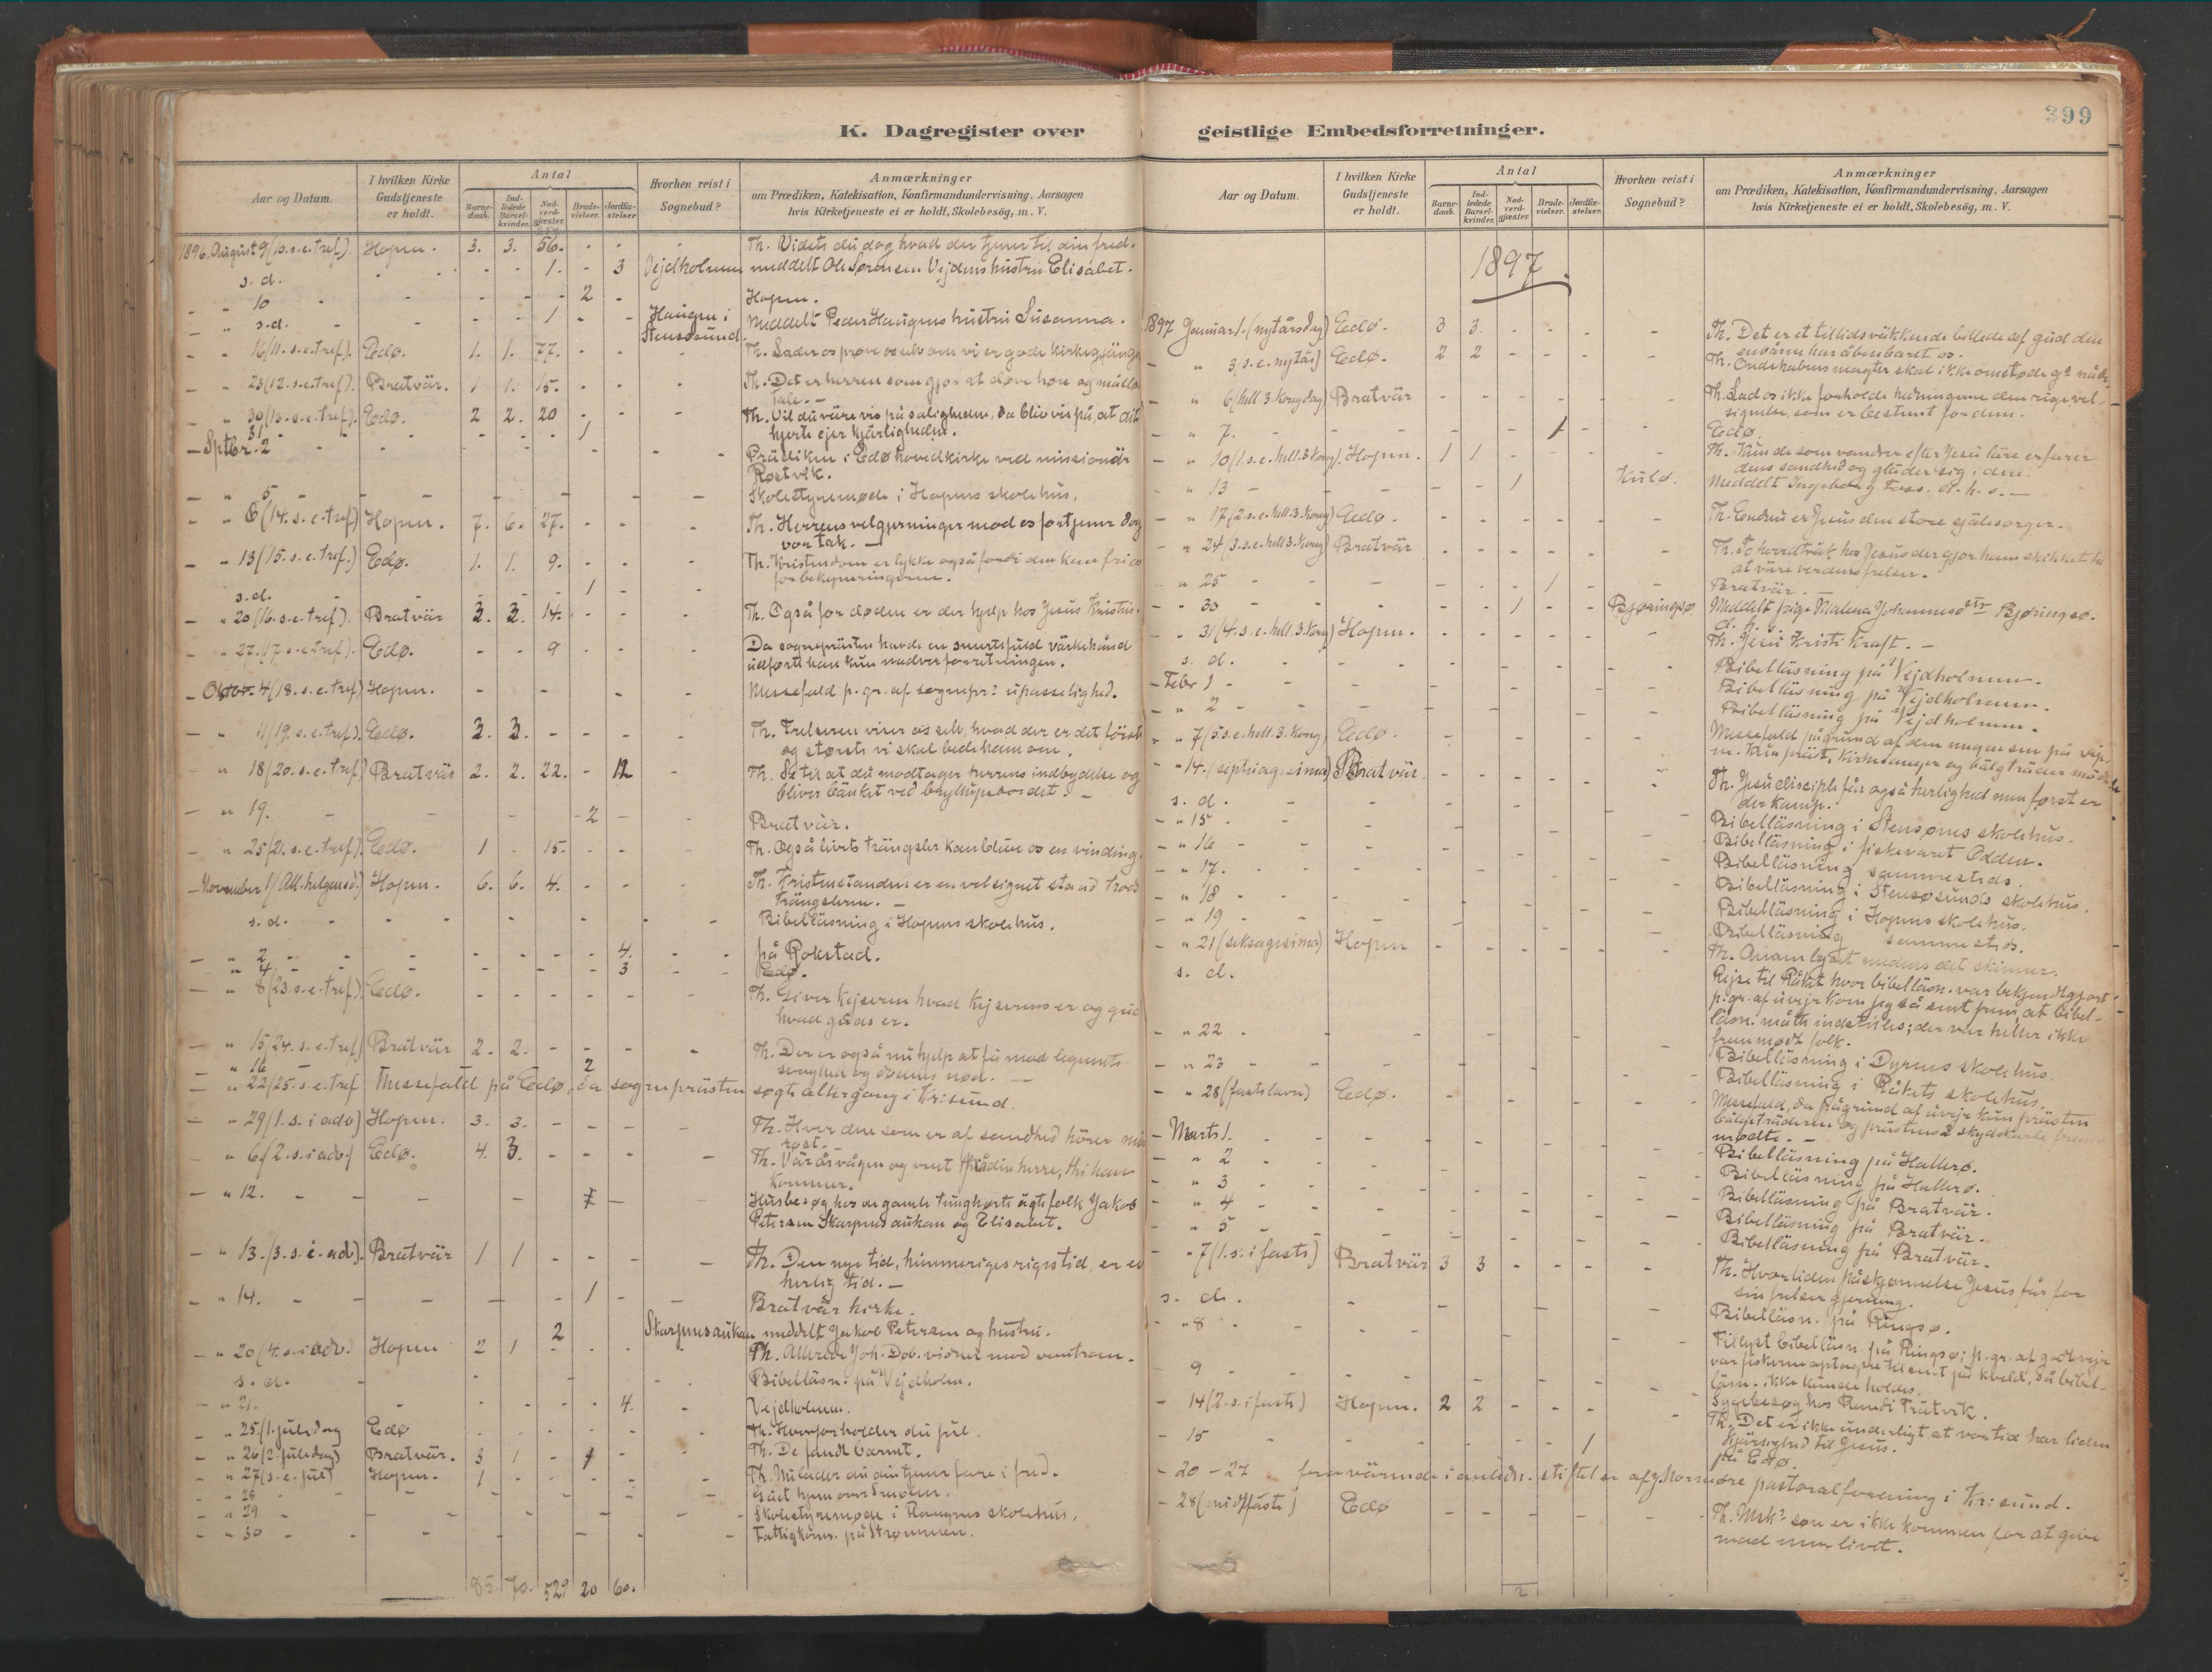 399
K. Dagregister over
Aar og Datum.
I hvilken Kirke Gudstjeneste er holdt.
Antal
Barne-daab. Ind-ledede Barsel-kvinder. Nad-verd-gjester. Brude-vielser. Jordfæ-stelser.
Hvorhen reist i Sognebud?
Anmærkninger
om Prædiken, Katekisation, Konfirmandundervisning, Aarsagen
hvis Kirketjeneste ei er holdt, Skolebesög, m. V.
1896. August 9 (10.s.e.tref). Hopen. 3. 3. 56. - - - Th. Vidste du dog hvad der tjener til din fred.
s.d. - - - - 1. - 3 Vejdholmen meddelt Ole Sørensen Vejdens hustru Elisabet.
- " 10 - - - - - 2 - Hopen.
- " s.d. - - - - 1 - - Haugen i Stensøsund. Meddelt Peder Haugens hustru Susanna.
- " 16 (11.s.e.tref). Edø. 1. 1. 77. - - - Th. Lader os prøve os selv om vi er gode kirkegjænge
- " 23 (12.s.e.tref). Bratvär. 1 1. 15. - - - Th. Det er herren som gjør at døve høre og målløse
tale. -
- " 30 (13.s.e.tref). Edø. 2 2. 20 - - - Th. Vil du väre vis på saligheden, da bliv vis på, at dit
hjerte ejer kjärligheden.
31 - - - - - 1
- Septbr. 2 - - - - Prädiken i Edø hovedkirke ved missionär
Røstvik.
- " 5 - - - - - - Skolestyremøde i Hopens skolehus.
- " 6 (14.s.e.tref) Hopen. 7. 6. 27. - - - Th. Herrens velgjerninger mod os fortjener dog
vor tak. -
- " 13 (15.s.e.tref.) Edø. 1. 1. 9. - - - Th. Kristendom er lykke også fordi den kan fri os
for bekymringerne.
s.d. - - - - 1 - -
- " 20 (16.s.e.tref). Bratvär 3. 3. 14. - - - Th. Også for døden er der hjelp hos Jesus Kristus.
- " 27. (17.s.e.tref). Edø. - - 9 - - - Da sogneprästen havde en smertefuld värkehånd
udførte han kun nadverforretningen.
- Oktbr. 4 (18.s.e.tref) Hopen. - - - - - Messefald p. gr. af sognepr: upasselighed.
- " 11 (19.s.e.tref). Edø. 3. 3. - - - - Th. Frelseren viser os selv, hvad der er det første
og største vi skal bede ham om.
- " 18 (20.s.e.tref) Bratvär 2. 2. 22. - 12 - Th. Se til at du modtager herrens indbydelse og
bliver bänket ved bryllupsbordet. -
- " 19. - - - - 2 - - Bratvär.
- " 25 (21.s.e.tref). Edø. 1 - 15. - - - Th. Også livets trängsler kan blive os en vinding.
- November 1 (All.helgensd.) Hopen. 6. 6. 4. - - - Th. Kristenstanden er en velsignet stand trods
trängslerne. -
s.d. - - - - - - - Bibelläsning i Hopens skolehus.
- " 2 - - - - - - 4. - - på Rokstad.
- " 4 - - - - - 3 - - Edø.
- " 8 (23.s.e.tref). Edø. - - - - - - Th. Giver kejseren hvad kejserens er og gud
hvad guds er.
- " 15 (24.s.e.tref) Bratvär 2. 2. - - - - Th. Der er også nu hjelp at få mod legemets
svaghed og dødens nød. -
- " 16 2
- " 22 (25.s.e.tref Messefald på Edø, da sogneprästen søgte altergang i Kr.sund.
- " 29 (1.s.i adv) Hopen. 3. 3. - - - - Th. Hver den som er af sandhed hører min
røst.
- " 6 (2.s.i adv.) Edø. 4. 3. - - - - Th. Vär årvågen og vent på din herre, thi han
kommer.
- " 12. - - - - 1 - Husbesøg hos de gamle tunghørte ägtefolk Jakob
Petersen Skarpnesaukan og Elisabet.
- " 13. (3.s.i.ad). Bratvär 1 1 - - - - Th. Den nye tid, himmeriges rigestid, er en
herlig tid. -
- " 14. - - - - - 1 - - Bratvär kirke.
2 Skarpnesaukan meddelt Jakob Petersen og hustru.
- " 20 (4.s.i adv.) Hopen 2 1 - - - Th. Allerede Joh. Døb. vidner mod vantroen.
s.d. - - - - Bibelläsn. på Vejdholm.
- " 21. - - - - - 4. - Vejdholmen.
" 25 (1. juledag Edø - - - - - Th. Hvorfor holder du jul.
- " 26 (2. juledag) Bratvär. 3 1 - 1 - Th. De fandt barnet.
- " 27 (s.e. jul) Hopen. 1 - - - - Th. Nu lader du din tjener fare i fred.
- " 28 - - - - - - Gået hjem over Smølen.
- " 29 - - - - - - Skolestyremøde i Haugens skolehus.
- " 30 - - - - - - Fattigkoms. på Strømmen.
85. 70. 529 20 60.
geistlige Embedsforretninger.
Aar og Datum.
I hvilken Kirke Gudstjeneste er holdt.
Antal
Barne-daab. Ind-ledede Barsel-kvinder. Nad-verd-gjester. Brude-vielser. Jordfæ-stelser.
Hvorhen reist i Sognebud?
Anmærkninger
om Prædiken, Katekisation, Konfirmandundervisning, Aarsagen
hvis Kirketjeneste ei er holdt, Skolebesög, m. V.
1897
1897 Januar 1. (nytårsdag) Edø. 3 3. - - - - Th. Det er et tillidsväkkende billede af gud den
enbårne har åbenbaret os.
" 3 (s.e. nytår) Edø. 2 2 - - - - Th. Ondskabens magter skal ikke omstøde gs nåde.
- " 6 (hell.3.kong.dag) Bratvär - - - - - Th. Lad os ikke forholde hedningerne den rige vel-
signelse, som er bestemt for dem.
- " 7. - - - - - 1 - - Edø.
- " 10 (1.s.e.hell.3.kong). Hopen. 1 1 - - - - Th. Kun de som vandrer efter Jesu läre erfarer
dens sandhed og gläder sig i den.
- " 13 - - - - 1 - - Kulø. Meddelt Ingeborg Foss. d. h. s. -
- " 17 (2.s.e.hell.3.kong) Edø. - - - - - - Th. Endnu er Jesus den store själesørger.
- " 24 (3.s.e.hell.3.kong) Bratvär - - - - - - Th. To hovedträk hos Jesus der gjør ham skikket til
at väre verdens frelser.
" 25 - - - - - 1 - - Bratvär. -
- " 30 - - - - 1 - - Bjøringsø Meddelt pige Malena Johannesdtr Bjøringsø.
d. h. s.
- " 31 (4.s.e.hell.3.kong) Hopen. - - - - - - Th. Jesu Kristi kraft. -
s. d. - - - - - - Bibelläsning på Vejdholmen.
- Febr 1 - - - - - - Bibelläsning på Vejdholmen.
- " 2 - - - - - - Bibelläsning på Vejdholmen.
- " 7 (5.s.e.hell.3.kong) Edø. - - - - - - Messefald pågrund af den megen sne på vej-
ne. Kun präst, kirkesanger og bälgträder mødte
- " 14. (septuagesima) Bratvär. - - - - - - Th. Jesu disciple får også herlighed men først er
der kamp.
s. d. - - - - Bibelläsning i Stensøens skolehus.
- " 15 - - - - Bibelläsning i fiskeväret Odden.
- " 16 - - - - Bibelläsning sammesteds.
- " 17. - - - - Bibelläsning i Stensøsunds skolehus.
- " 18 - - - - Bibelläsning i Hopens skolehus.
- " 19 - - - - Bibelläsning sammesteds.
- " 21 (seksagesima) Hopen - - - - - - Th. Anam lyset medens det skinner.
s. d. Rejse til Råket hvor bibelläsn. var bekjendtgjort.
p.gr. af uvejr kom jeg så sent frem, at bibel-
läsn. måtte indstilles; der var heller ikke
fremmødt folk.
- " 22 - - - - Bibelläsning i Dyrnes skolehus.
- " 23 - - - - Bibelläsning i Råkets skolehus.
- " 28 (fastelavn) Edø. - - - - - - Messefald, da pågrund af uvejr kun prästen
bälgträderen og prästens 2 skydskarle frem-
mødte. -
- Marts 1. - - - - Bibelläsning på Hallerø.
- " 2 - - - - Bibelläsning på Hallerø.
- " 3 - - - - Bibelläsning på Bratvär.
- " 4 - - - - Bibelläsning på Bratvär.
- " 5 - - - - Bibelläsning på Bratvär.
- " 7 (1.s.i faste) Bratvär 3 3 - - - - Th. Hvor liden påskjønnelse Jesus får for
sin frelsergjerning.
s. d. - - - Bibelläsn. på Ringsø.
- " 8 - - - - Tillyst bibelläsn. på Ringsø; p. gr. af godt vejr
var fiskerne optagne til sent på kveld, så bibel-
läsn. ikke kunde holdes.
- 9 - - - - Sygebesøg hos Randi Trätvik.
- 14 (2.s.i faste) Hopen. 2 2 - - - - Th. Det er ikke underligt at vor tid har liden
kjärlighed til Jesus.
- 15 - - - - - 1 - på Edø.
- 20 - 27 fraværende i anledn. stiftelse af Nordmøre pastoralforening i Kr.sund.
- 28 (midfaste) Edø - - - - - - Th. Msk: søn er ikke kommen for at gjøre
mod men livet.
2